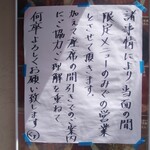 諸事情により当面の間
限定メニューのみの営業
とさせて頂きます。
加えて座席の間引いてのご案内
にご協力ご理解を重ねて
何卒よろしくお願い致します